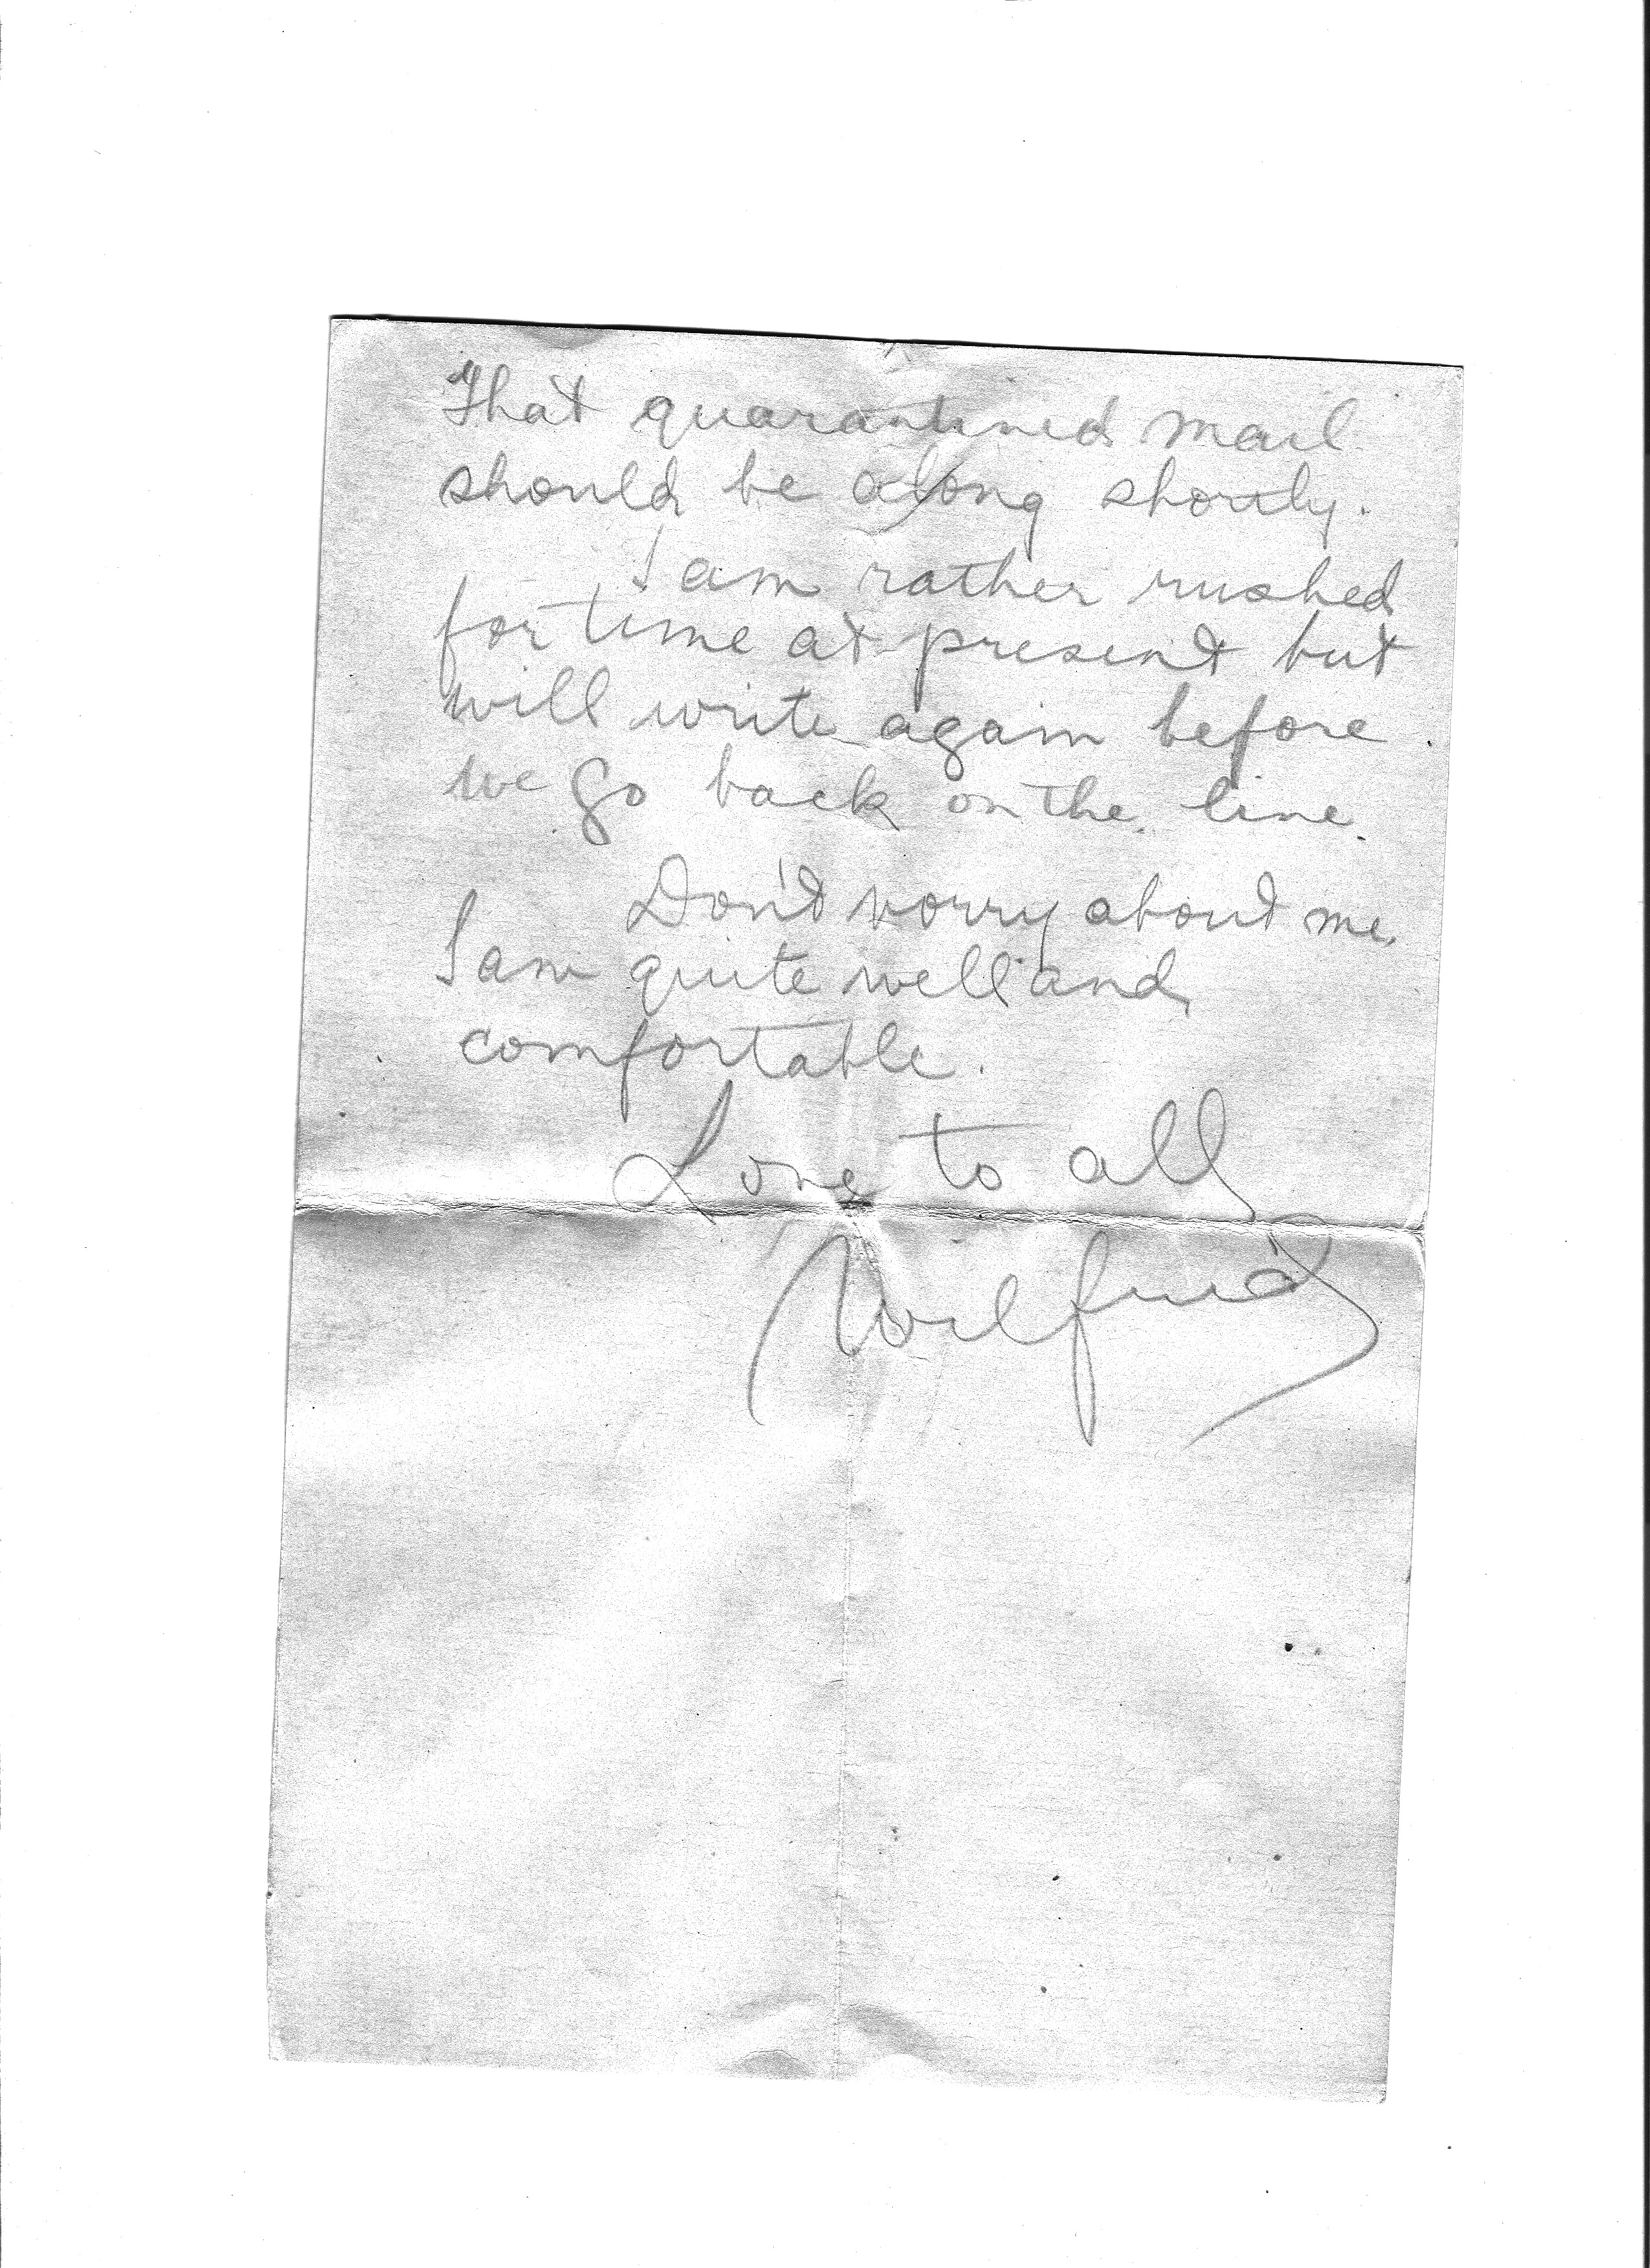 That quarantined mail
should be along shortly.
I am rather rushed
for time at present but
will write again before
we go back on the line.
Don't worry about me.
I am quite well and
comfortable.
Love to all
Wilfrid